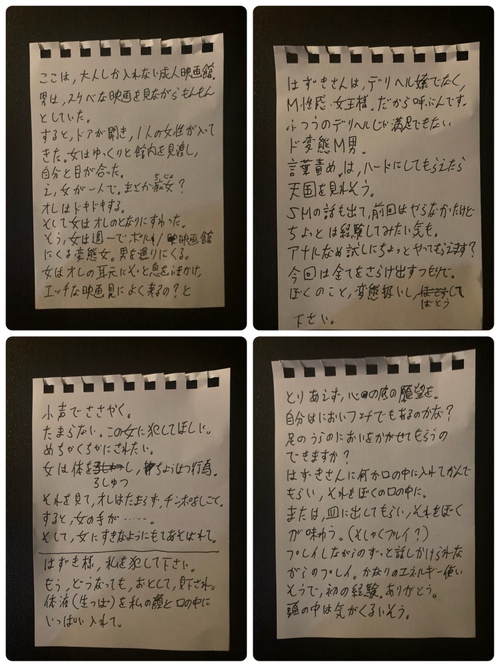 ここは、大人しか入れない成人映画館。
男は、スケベな映画を見ながらもんもん
としていた。
すると、ドアが開き、1人の女性が入って
きた。女はゆっくりと館内を見渡し、
自分と目が合った。
え、女が一人で。まさか痴女?
ちじょ
オレはドキドキする。
そして女はオレのとなりにすわった。
そう、女は週一でポルノ映画館
にくる変態女。男を漁りにくる。
女はオレの耳元にそっと息をふきかけ、
エッチな映画見によく来るの?と
はずきさんは、デリヘル嬢でなく、
M性感・女王様。だから呼ぶんです。
ふつうのデリヘルじゃ満足できない
ド変態M男。
言葉責め。は、ハードにしてもらえたら
天国を見れそう。
SMの話も出て、前回はやらなかったけど
ちょっとは経験してみたい気も。
アナルなめ試しにちょっとやってもらえます?
今回は全てをさらけ出すつもりで。
ぼくのこと、変態扱いし、して
ばとう
下さい。
小声でささやく。
たまらない。この女に犯してほしい。
めちゃくちゃにされたい。
女は体をし、ちょうはつ行為。
ろしゅつ
それを見て、オレはたまらず、チンポをしごく。
すると、女の手が……
そして、女にすきなようにもてあそばれて。
はずき様、私を犯して下さい。
もう、どうなっても、おとして、下され。
体液(生つば)を私の顔と口の中に
いっぱい入れて。
とりあえず、心の底の願望を。
自分はにおいフェチでもあるのかな?
足のうらのにおいをかがせてもらうの
できますか?
はずきさんに何か口の中に入れてかんで
もらい、それをぼくの口の中に。
または、皿に出してもらい、それをぼく
が味わう。(そしゃくプレイ?)
プレイしながらのずっと話しかけられな
がらのプレイ。かなりのエネルギー使い
そうで、初の経験。ありがとう。
頭の中は気がくるいそう。